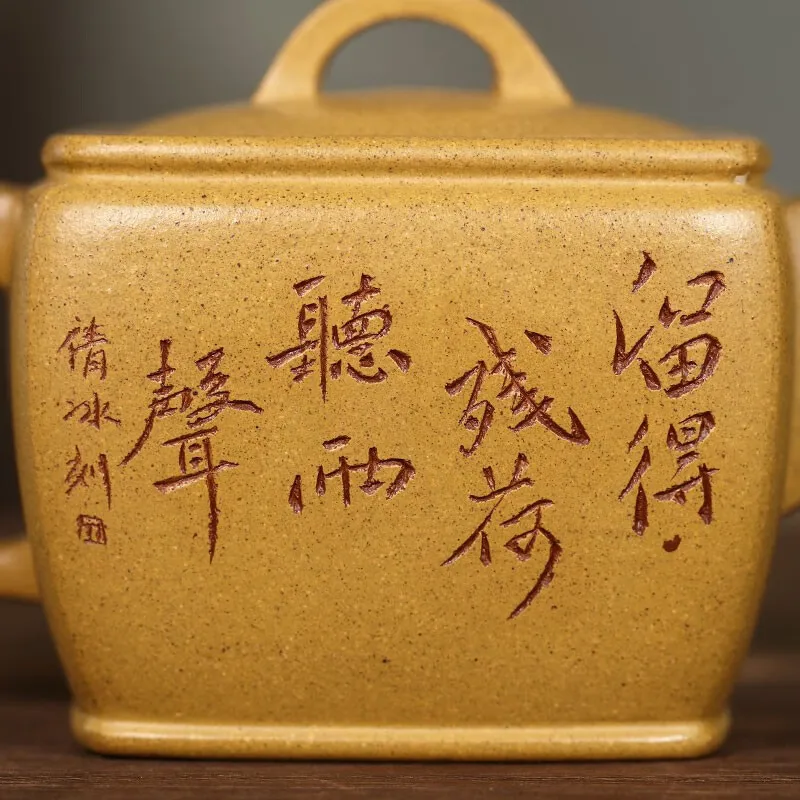 留得
残荷
聽雨
聲
倩冰刻